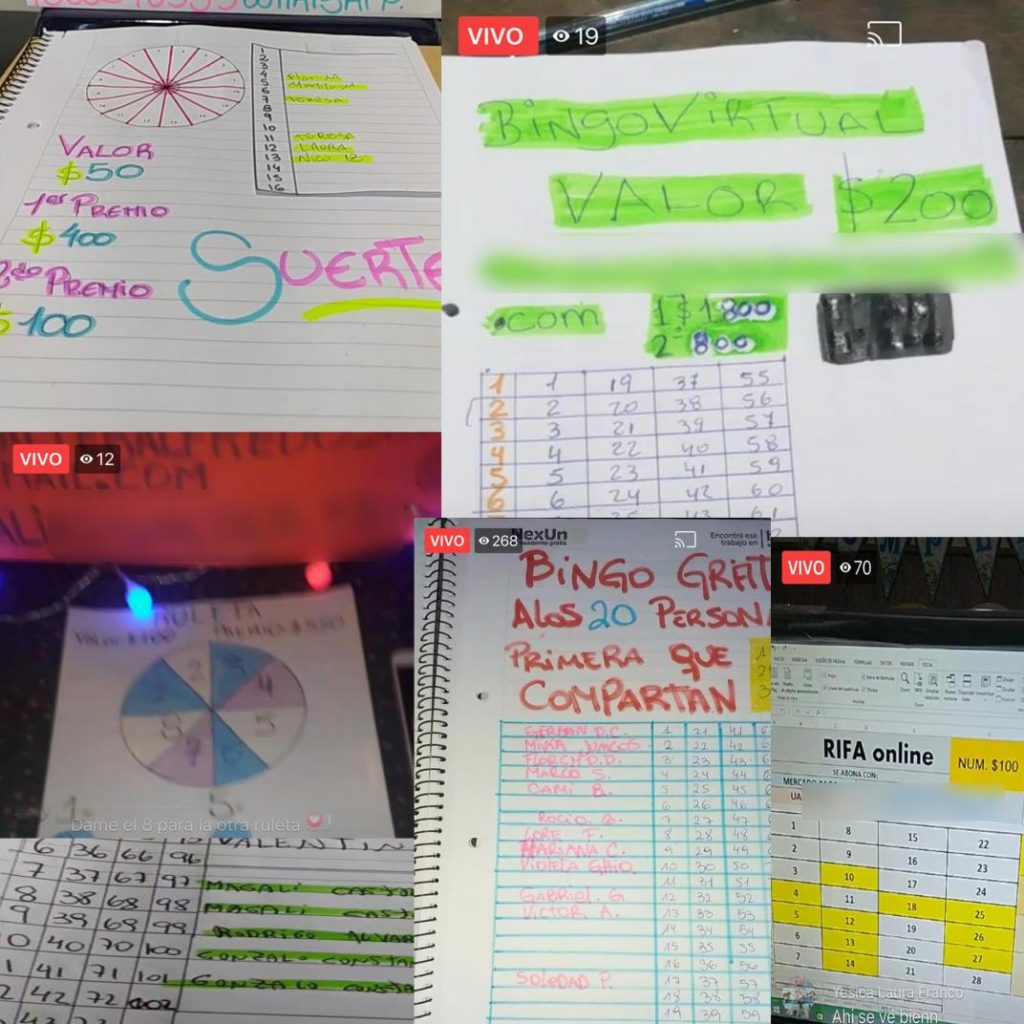 VALOR
$50
1er PREMIO
$400
2do PREMIO
$100
SUERTE
1
2
3
4
5
6
7
8
9
10
11 TERESA
12 LAURA
13 NICO
14
15
16
VIVO 19
BINGO VIRTUAL
VALOR $200
.com
1º $1800
2º 800
1 1 19 37 55
2 2 20 38 56
3 3 21 39 57
4 4 22 40 58
5 5 23 41 59
6 6 24 42 60
VIVO 12
MAIL.COM
RULETA
1
2
3
4
5
6
7
8
Dame el 8 para la otra ruleta 1
6 36 66 96 VALENTIN
7 37 67 97 MAGALI
8 38 68 98 MAGALI
9 39 69 99 RODRIGO ALVAR
40 70 100 GONZALO CONSTA
41 71 101 GONZALO
42 72 102
VIVO 268
NexUn
Encontrá ese
trabajo en
BINGO GRAT
A LOS 20 PERSON
PRIMERA QUE
COMPARTAN
GERMAN D.C. 1 21 41
MIKA JUNCOS 2 22 42
FLORCH D.D. 3 23 43
MARCO S. 4 24 44
CAMI B. 5 25 45
6 26 46
ROCIO B. 7 27 47
LORE F. 8 28 48
MARIANA C. 9 29 49
VIOLETA GHIO 10 30 50
11 31 51
GABRIEL G 12 32 52
VICTOR A. 13 33 53
14 34 54
15 35 55
16 36 56
SOLEDAD P. 17 37 57
18 38 58
19 39 59
VIVO 70
RIFA online
NUM. $100
SE ABONA CON:
MERCADO PAGO
UA
1 8 15 22
2 9 16 23
3 10 17 24
4 11 18 25
5 12 19 26
6 13 20 27
7 14 21 28
Yesica Laura Franco
Ahi se ve bienn